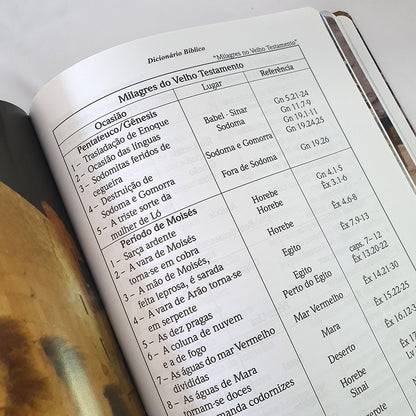 Dicionário Bíblico
"Milagres no Velho Testamento"
Milagres do Velho Testamento
Ocasião Lugar Referência
Pentateuco/Gênesis
1 – Trasladação de Enoque Gn 5.21-24
2 – Ocasião das línguas Babel - Sinar Gn 11.7-9
3 – Sodomitas feridos de Sodoma Gn 19.1-11
cegueira
4 – Destruição de Sodoma e Gomorra Gn 19.24,25
Sodoma e Gomorra
5 – A triste sorte da Fora de Sodoma Gn 19.26
mulher de Ló
Período de Moisés
1 – Sarça ardente Horebe Êx 4.1-5
2 – A vara de Moisés Horebe Êx 3.1-6
torna-se em cobra
3 – A mão de Moisés, Horebe Êx 4.6-8
feita leprosa, é sarada
4 – A vara de Arão torna-se Egito Êx 7.9-13
em serpente
5 – As dez pragas Egito caps. 7–12
6 – A coluna de nuvem Perto do Egito Êx 13.20-22
e a de fogo
7 – As águas do mar Vermelho Mar Vermelho Êx 14.21-30
divididas
8 – As águas de Mara Mara Êx 15.22-25
tornam-se doces
manda codornizes Deserto
Horebe
Sinai